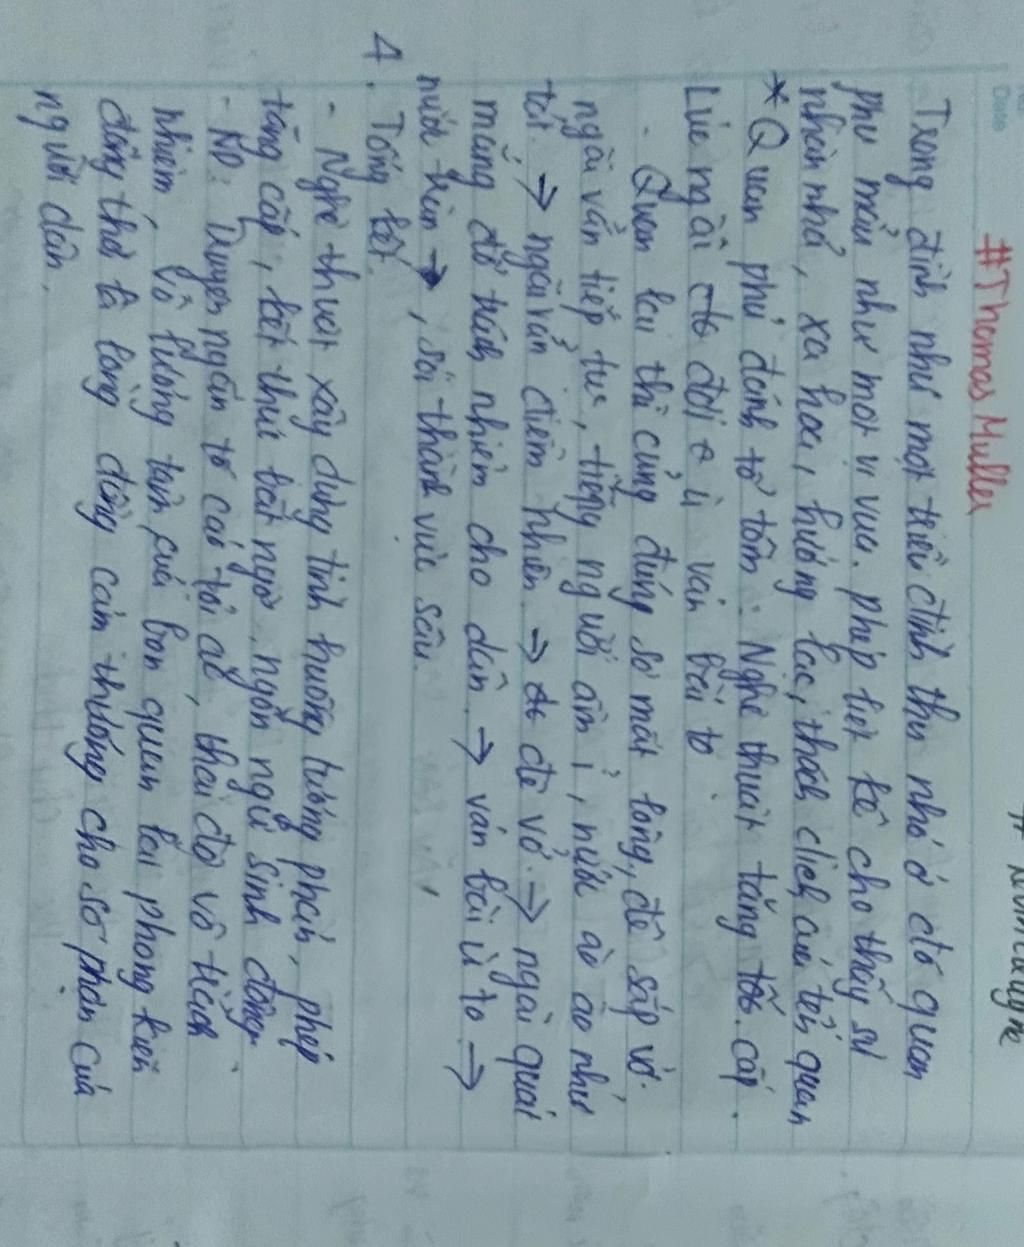 #Thomas Muller
Trong đình như một triều đình thu nhỏ ở đó quan
phụ mẫu như một vị vua. phép liệt kê cho thấy sự
nhàn nhã, xa hoa, hưởng lạc, thách của tên quan
* Quan phủ đánh tổ tôm: Nghệ thuật tăng cấp.
Lúc ngài đợi ván bài to
- Quan lại thì cũng đúng sợ mất lòng, đê sắp vỡ.
ngài vẫn tiếp tục, tiếng người ầm ỉ, nước ào ào như
tốt. → ngài vẫn điềm nhiên. → đê vỡ. → ngài quát
mắng đổ trách nhiệm cho dân. → ván bài ù to →
nước tràn →, sói thành vực sâu.
4. Tổng kết.
- Nghệ thuật xây dựng tình huống tương phản, phép
tăng cấp, kết thúc bất ngờ, ngôn ngữ sinh động
- ND: tố cáo thái độ vô trách
nhiệm, vô lương tâm của bọn quan lại phong kiến
đồng thời là lòng đồng cảm thương cho số phận của
người dân.